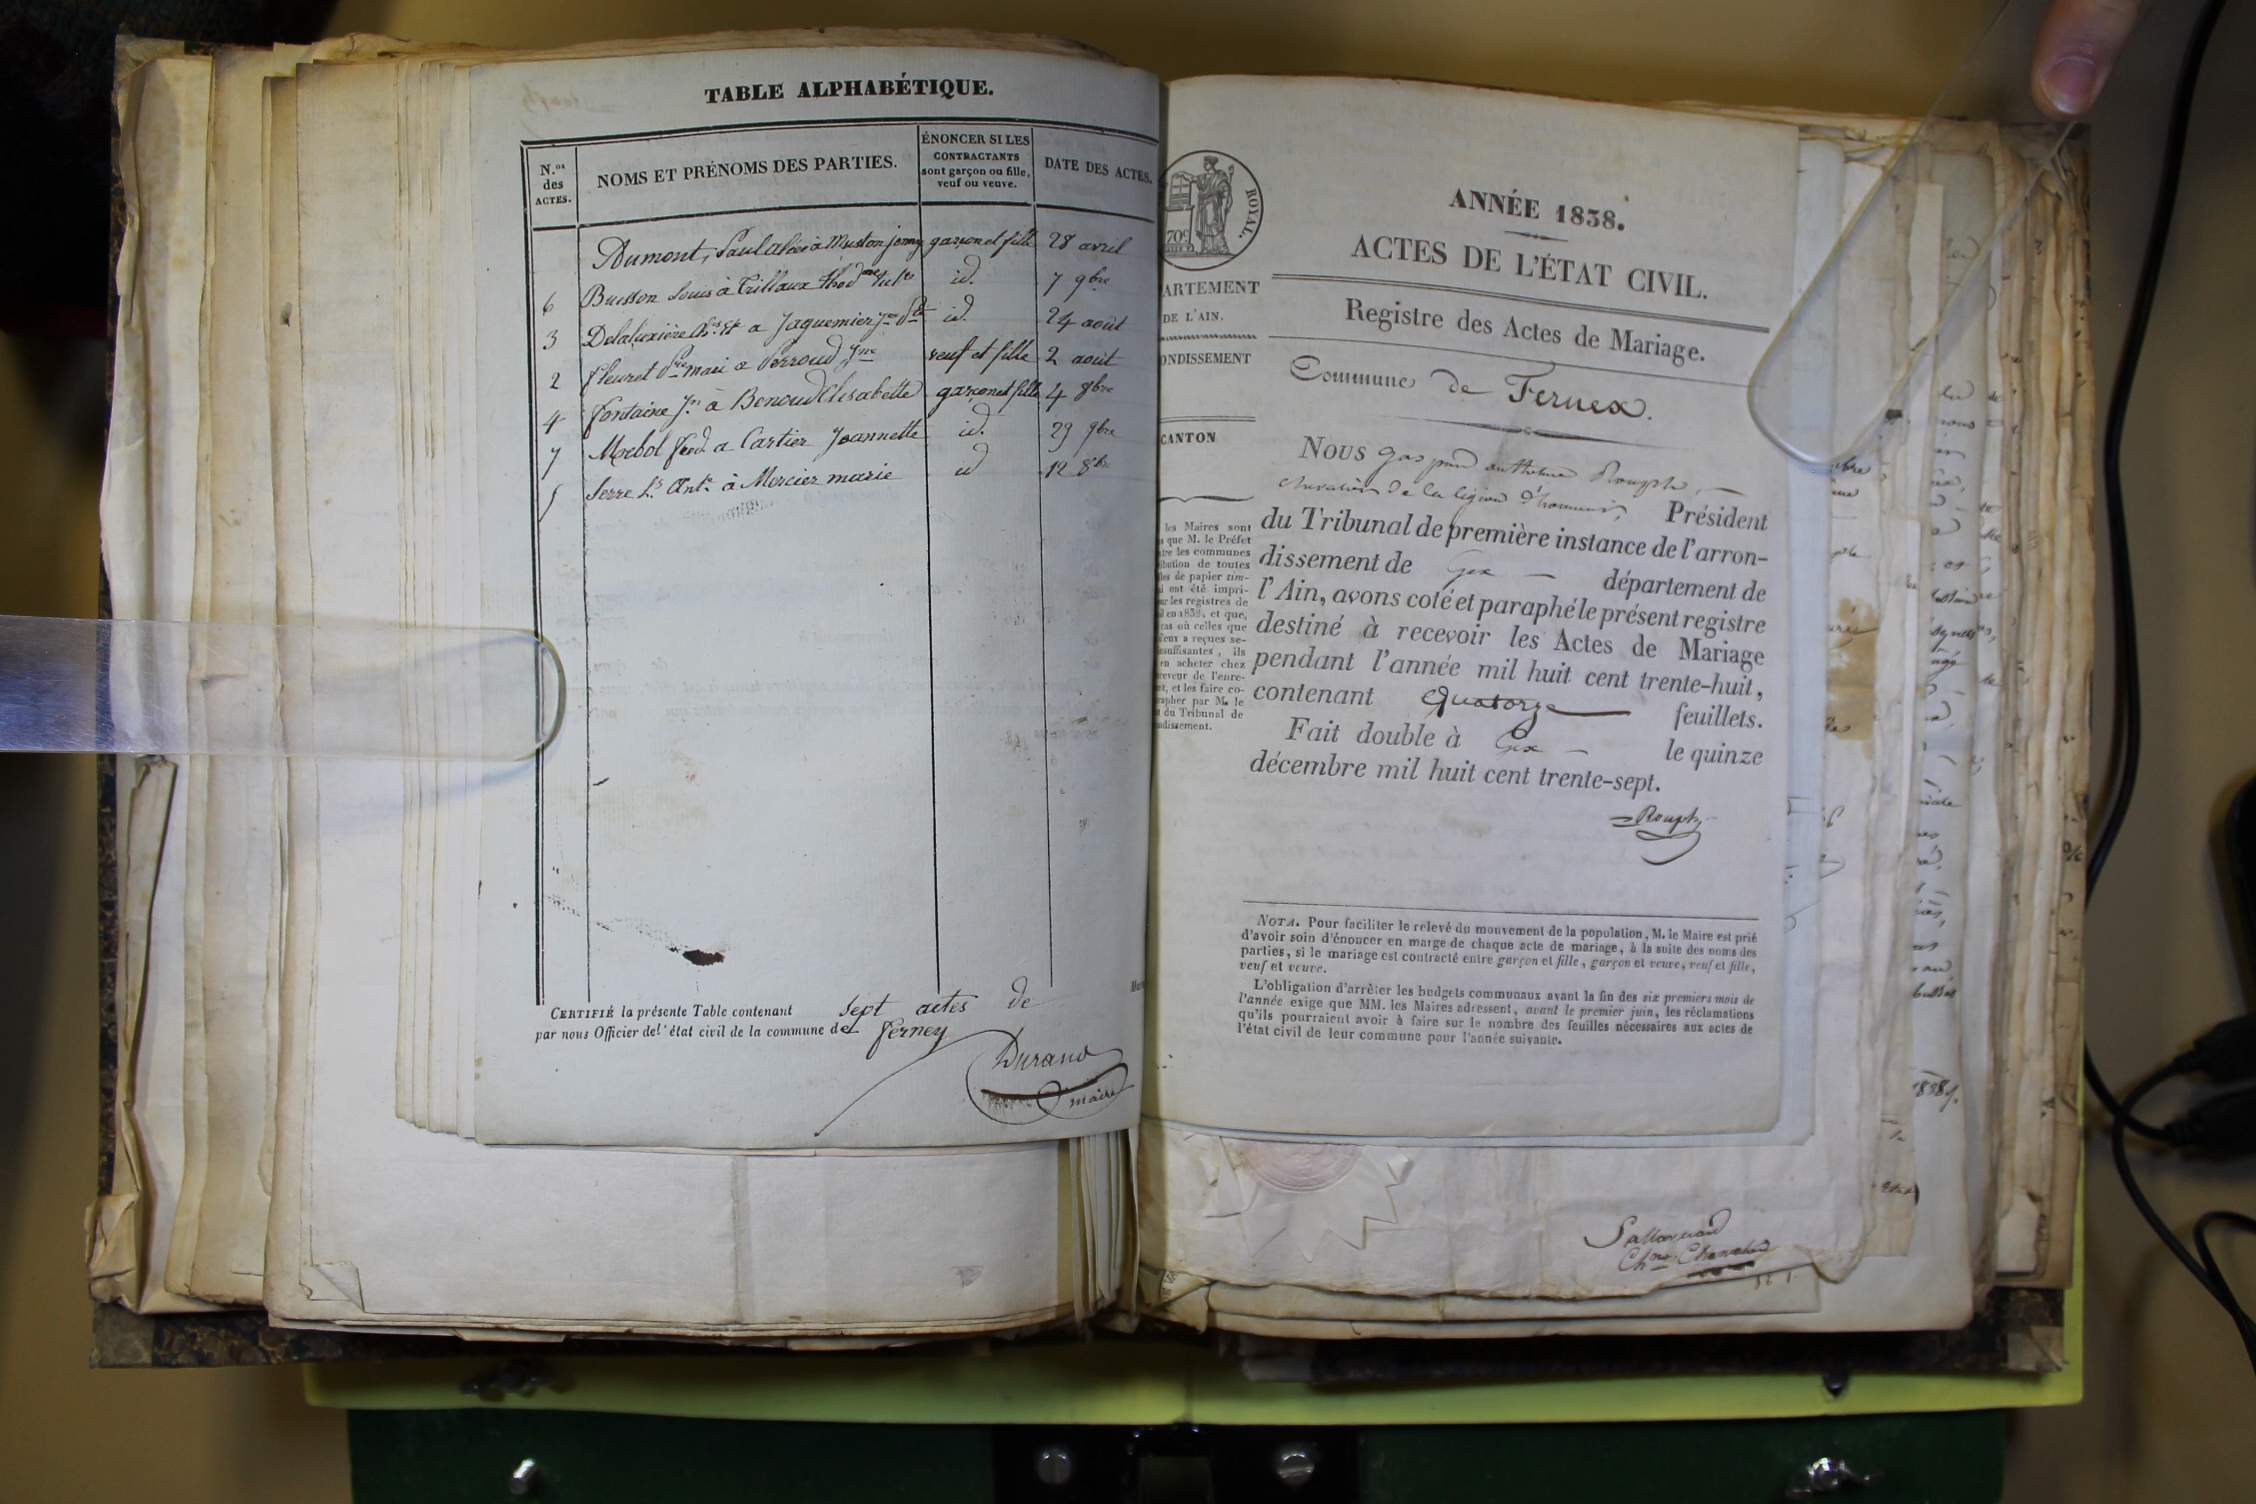 TABLE ALPHABÉTIQUE.
N.os des ACTES.
NOMS ET PRÉNOMS DES PARTIES.
ÉNONCER SI LES CONTRACTANTS sont garçon ou fille, veuf ou veuve.
DATE DES ACTES.
Dumont, Paul à Muston jenny garçon et fille 28 avril
6 Buisson Louis à Trillaux id. 7 9bre
3 a Jaquemier id. 24 août
2 fleuret mari a Perroud Jne veuf et fille 2 août
4 fontaine Jn à Benoud Elisabette garçon et fille 4 8bre
7 Mebol ferd a Cartier Jeannette id. 29 9bre
5 Serre Ls Ante à Mercier marie id 12 8bre
CERTIFIÉ la présente Table contenant sept actes de
par nous Officier de l'état civil de la commune de Ferney
Durand
maire
ROYAL.
ARTEMENT
DE L'AIN.
ONDISSEMENT
CANTON
les Maires sont
que M. le Préfet
les communes
bution de toutes
les de papier tim-
ont été impri-
les registres de
en 1838, et que,
cas où celles que
eux a reçues se-
suffisantes, ils
en acheter chez
ceveur de l'enre-
et les faire co-
rapher par M. le
du Tribunal de
ndissement.
ANNÉE 1838.
ACTES DE L'ÉTAT CIVIL.
Registre des Actes de Mariage.
Commune de Fernex.
Nous gaspard anthoine Rouph,
chevalier de la légion d'honneur, Président
du Tribunal de première instance de l'arron-
dissement de Gex département de
l'Ain, avons coté et paraphé le présent registre
destiné à recevoir les Actes de Mariage
pendant l'année mil huit cent trente-huit,
contenant quatorze feuillets.
Fait double à Gex le quinze
décembre mil huit cent trente-sept.
Rouph
NOTA. Pour faciliter le relevé du mouvement de la population, M. le Maire est prié
d'avoir soin d'énoncer en marge de chaque acte de mariage, à la suite des noms des
parties, si le mariage est contracté entre garçon et fille, garçon et veuve, veuf et fille,
veuf et veuve.
L'obligation d'arrêter les budgets communaux avant la fin des six premiers mois de
l'année exige que MM. les Maires adressent, avant le premier juin, les réclamations
qu'ils pourraient avoir à faire sur le nombre des feuilles nécessaires aux actes de
l'état civil de leur commune pour l'année suivante.